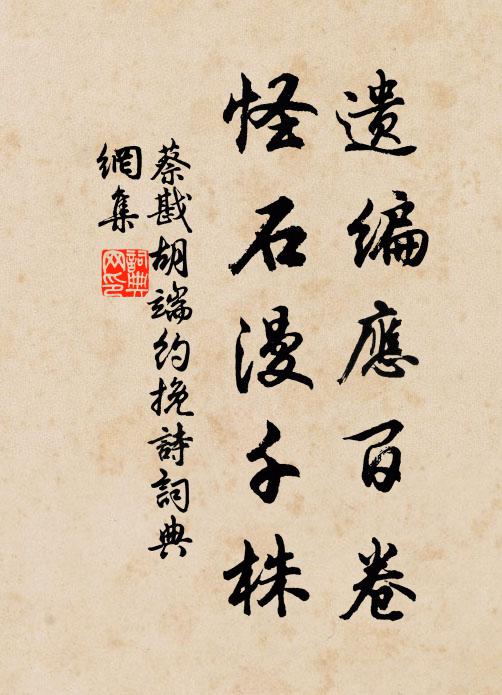 遺編應百卷
怪石漫千株
蔡戡胡端約挽詩詞典
網集
詞典
网印